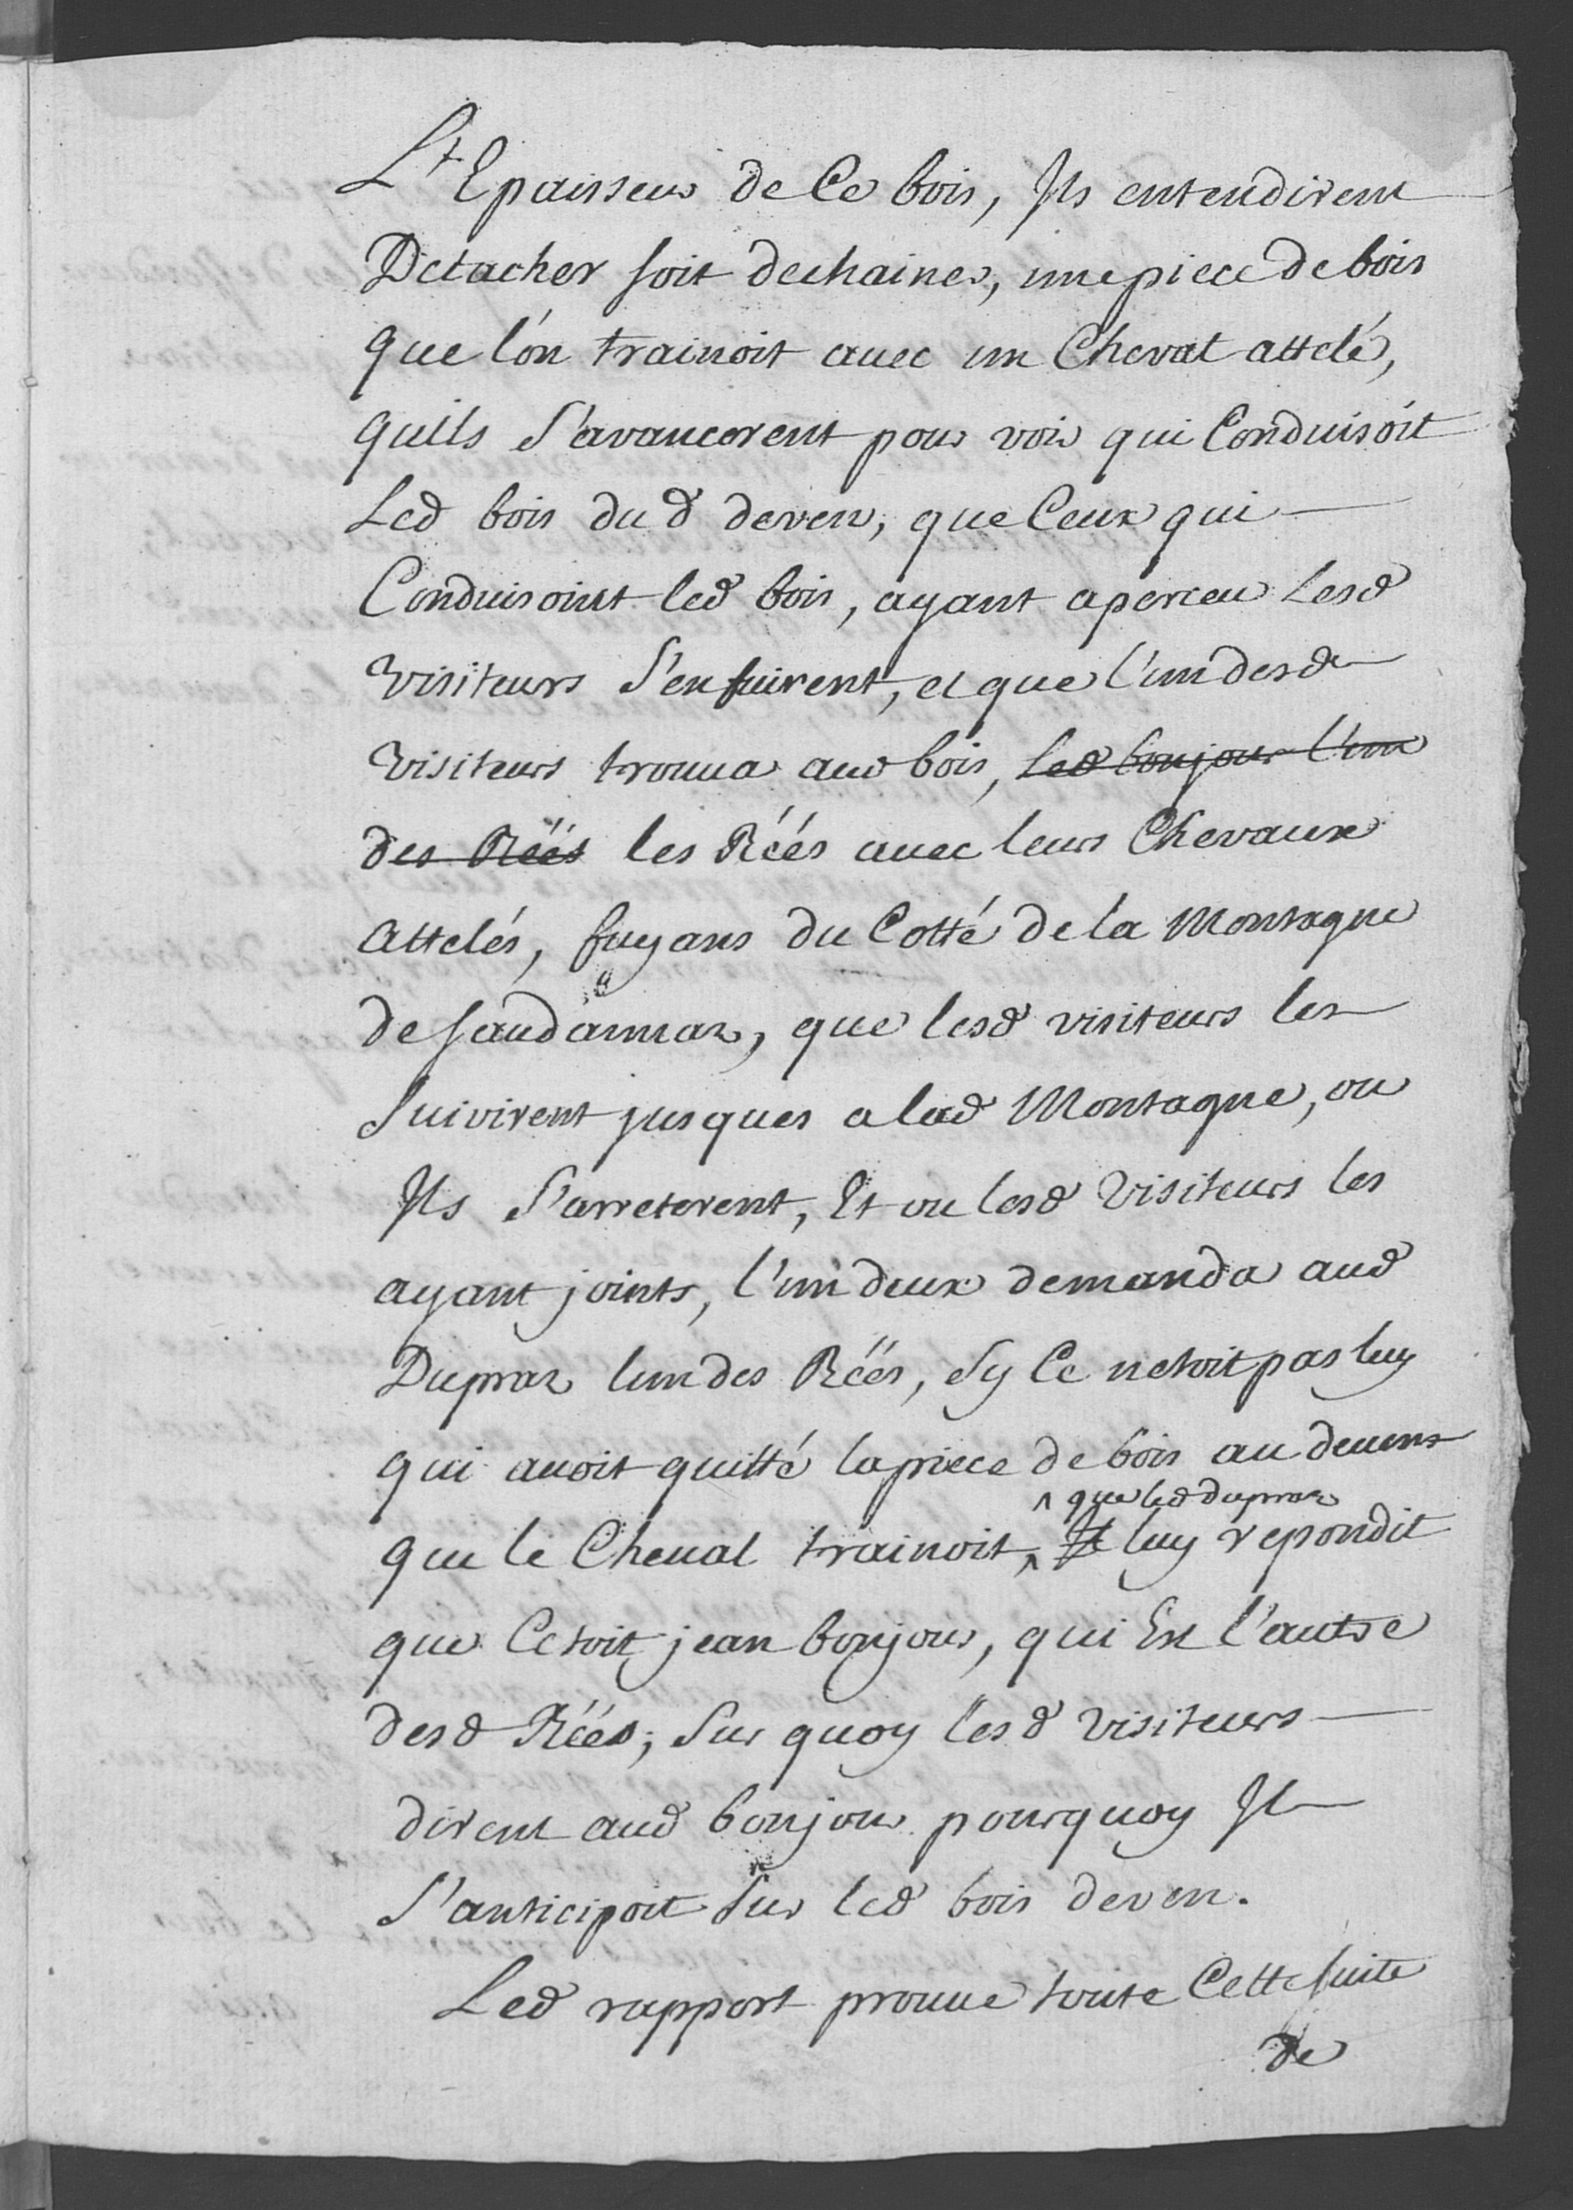 L'Epaisseur de Ce bois, Ils entendirent
Detacher soit dechainer, une piece de bois
que l'on trainoit avec un Cheval attelé,
quils s'avancerent pour voir qui Conduisoit
Led bois du d deven, que Ceux qui
Conduisoint led bois, ayant aperceu Lesd
visiteurs s'enfuirent, et que l'un desd
visiteurs trouua aud bois, Led bonjour l'un
des Réés les Réés auec leurs Chevaux
attelés, fuyans du Cotté de la Montagne
de, que lesd visiteurs les
suivirent jusques a lad Montagne, ou
Ils s'arreterent, Et ou lesd Visiteurs les
ayant joints, l'un deux demanda aud
Dupraz lun des Réés, sy Ce netoit pas luy
qui auoit quitté la piece de bois au devens
^ que led dupraz
que le Cheual trainoit, ^ Il luy repondit
que Cetoit jean bonjour, qui Est l'autre
desd Réés; Sur quoy lesd Visiteurs
dirent aud bonjour pourquoy Il
s'anticipoit sur led bois deven.
Led rapport prouue toute Cette suite
de